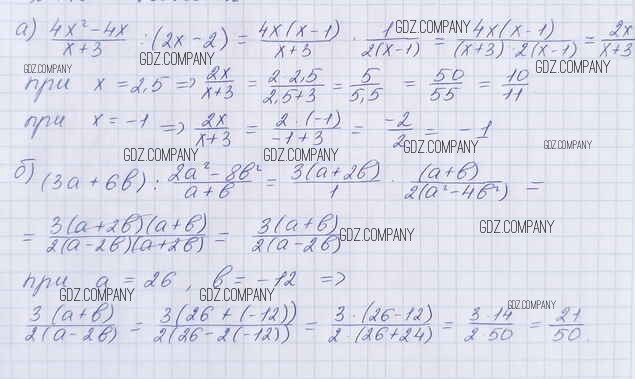 а) (4x² - 4x)/(x+3) : (2x - 2) = 4x(x-1)/(x+3) · 1/(2(x-1)) = 4x(x-1)/((x+3)·2(x-1)) = 2x/(x+3)
GDZ.COMPANY
GDZ.COMPANY
GDZ.COMPANY
GDZ.COMPANY
при x = 2,5 => 2x/(x+3) = 2·2,5/(2,5+3) = 5/5,5 = 50/55 = 10/11
при x = -1 => 2x/(x+3) = 2·(-1)/(-1+3) = -2/2 = -1
GDZ.COMPANY
GDZ.COMPANY
GDZ.COMPANY
GDZ.COMPANY
б) (3a + 6b) : (2a² - 8b²)/(a+b) = 3(a+2b)/1 · (a+b)/(2(a²-4b²)) =
= 3(a+2b)(a+b)/(2(a-2b)(a+2b)) = 3(a+b)/(2(a-2b))
GDZ.COMPANY
GDZ.COMPANY
при a = 26, b = -12 =>
GDZ.COMPANY
GDZ.COMPANY
GDZ.COMPANY
3(a+b)/(2(a-2b)) = 3(26+(-12))/(2(26-2(-12))) = 3·(26-12)/(2·(26+24)) = 3·14/(2·50) = 21/50.